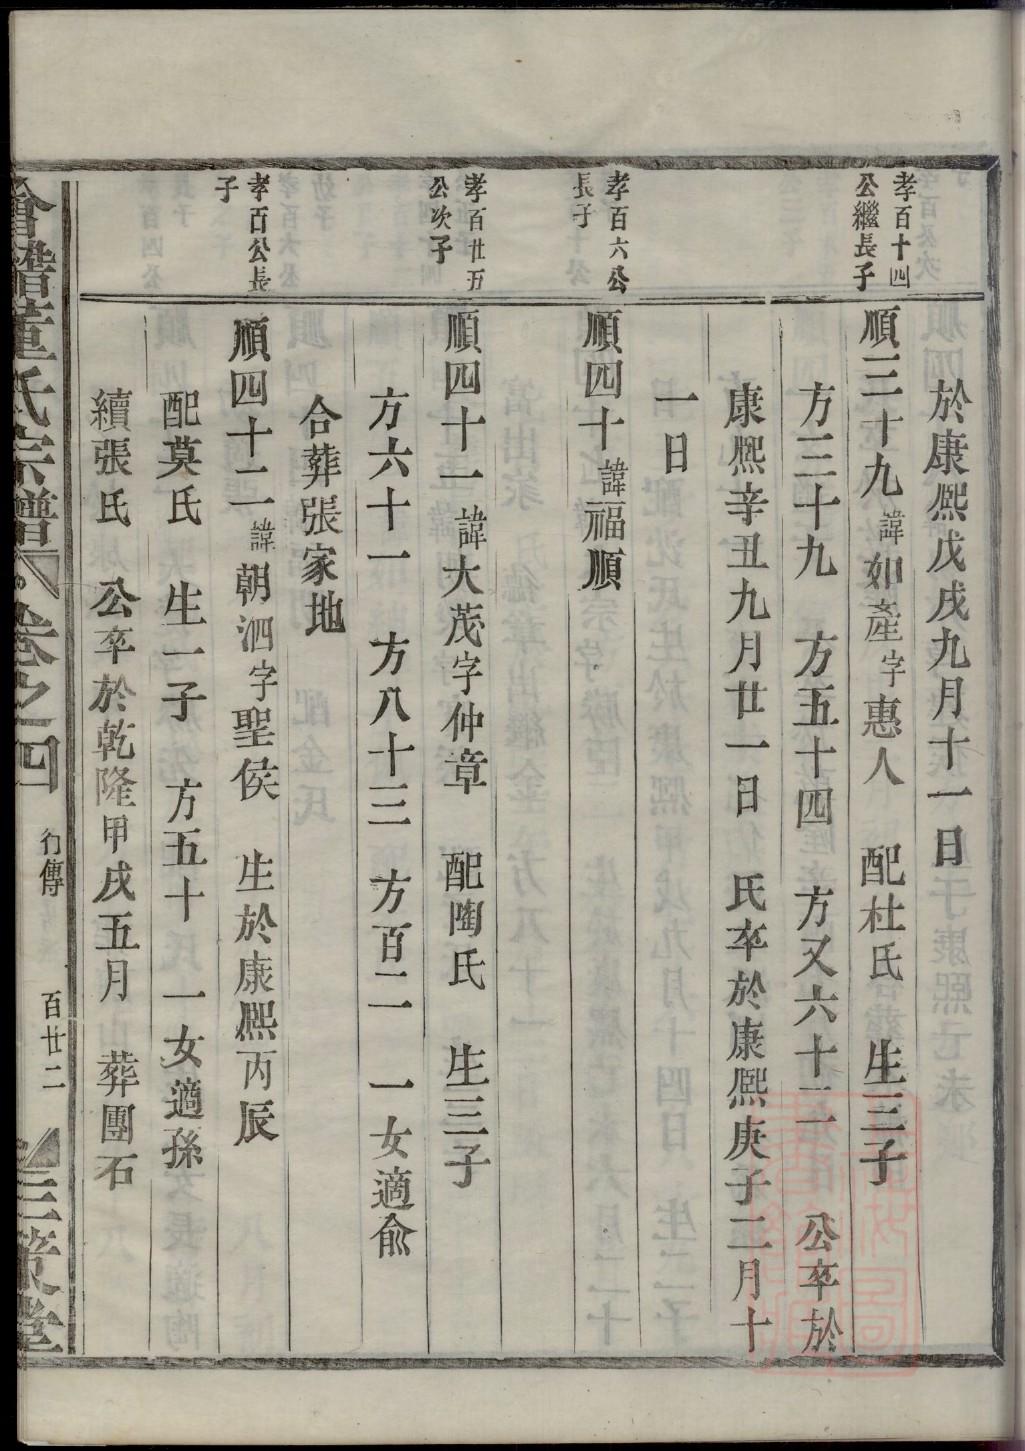 於康熙戊戌九月十一日
孝百十四
公繼長子
順三十九諱如產字惠人　配杜氏　生三子
方三十九　方五十四　方又六十二　公卒於
康熙辛丑九月廿一日　氏卒於康熙庚子二月十
一日
孝百六公
長子
順四十諱福順
孝百廿五
公次子
順四十一諱大茂字仲章　配陶氏　生三子
方六十一　方八十三　方百二　一女適俞
合葬張家地
孝百公長
子
順四十二諱朝泗字聖侯　生於康熙丙辰
配莫氏　生一子　方五十　氏一女適孫
續張氏　公卒於乾隆甲戌五月　葬團石
會稽董氏宗譜　卷之四　行傳　百廿二　三策堂